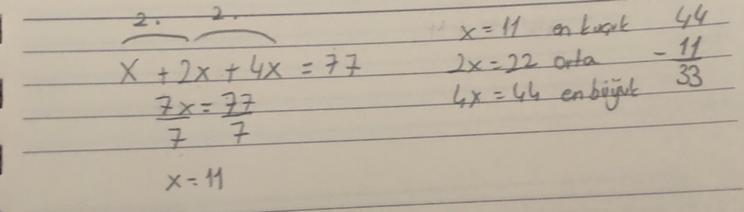 2. 2.
x + 2x + 4x = 77
7x = 77
7 7
x = 11
x = 11 en küçük
2x = 22 orta
4x = 44 en büyük
44
- 11
33